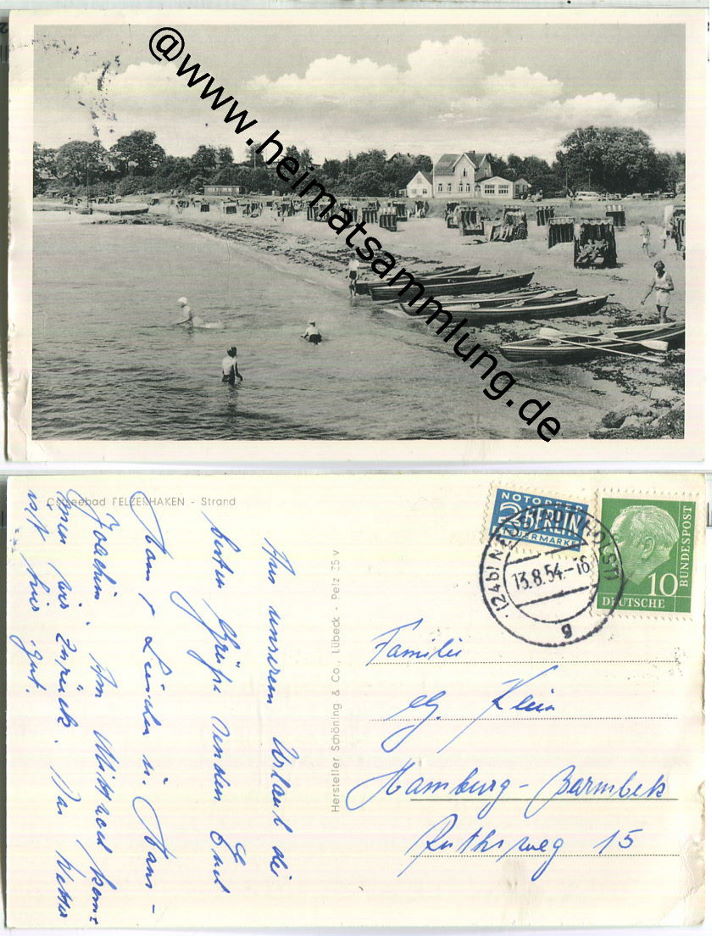 @www.heimatsammlung.de
Ostseebad PELZERHAKEN - Strand
Aus unserem Urlaub die
besten Grüße senden Euch
Hans -
Joachim. Am Mittwoch kom-
men wir zurück. Das Wetter
ist hier gut.
Hersteller Schöning & Co., Lübeck - Pelz 75 v
NOTOPFER
2 BERLIN
STEUERMARKE
(24b) NEUSTADT (HOLST)
13.8.54.-16
g
10
DEUTSCHE
BUNDESPOST
Familie
Klein
Hamburg-Barmbek
Ruthsweg 15